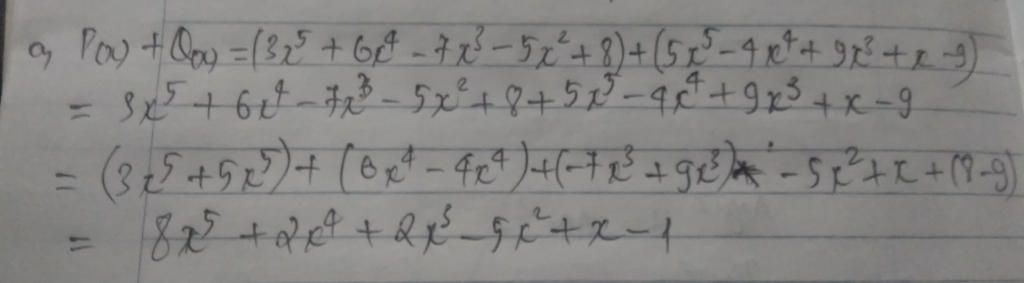 a, P(x) + Q(x) = (3x⁵ + 6x⁴ - 7x³ - 5x² + 8) + (5x⁵ - 4x⁴ + 9x³ + x - 9)
= 3x⁵ + 6x⁴ - 7x³ - 5x² + 8 + 5x⁵ - 4x⁴ + 9x³ + x - 9
= (3x⁵ + 5x⁵) + (6x⁴ - 4x⁴) + (-7x³ + 9x³) - 5x² + x + (8 - 9)
= 8x⁵ + 2x⁴ + 2x³ - 5x² + x - 1